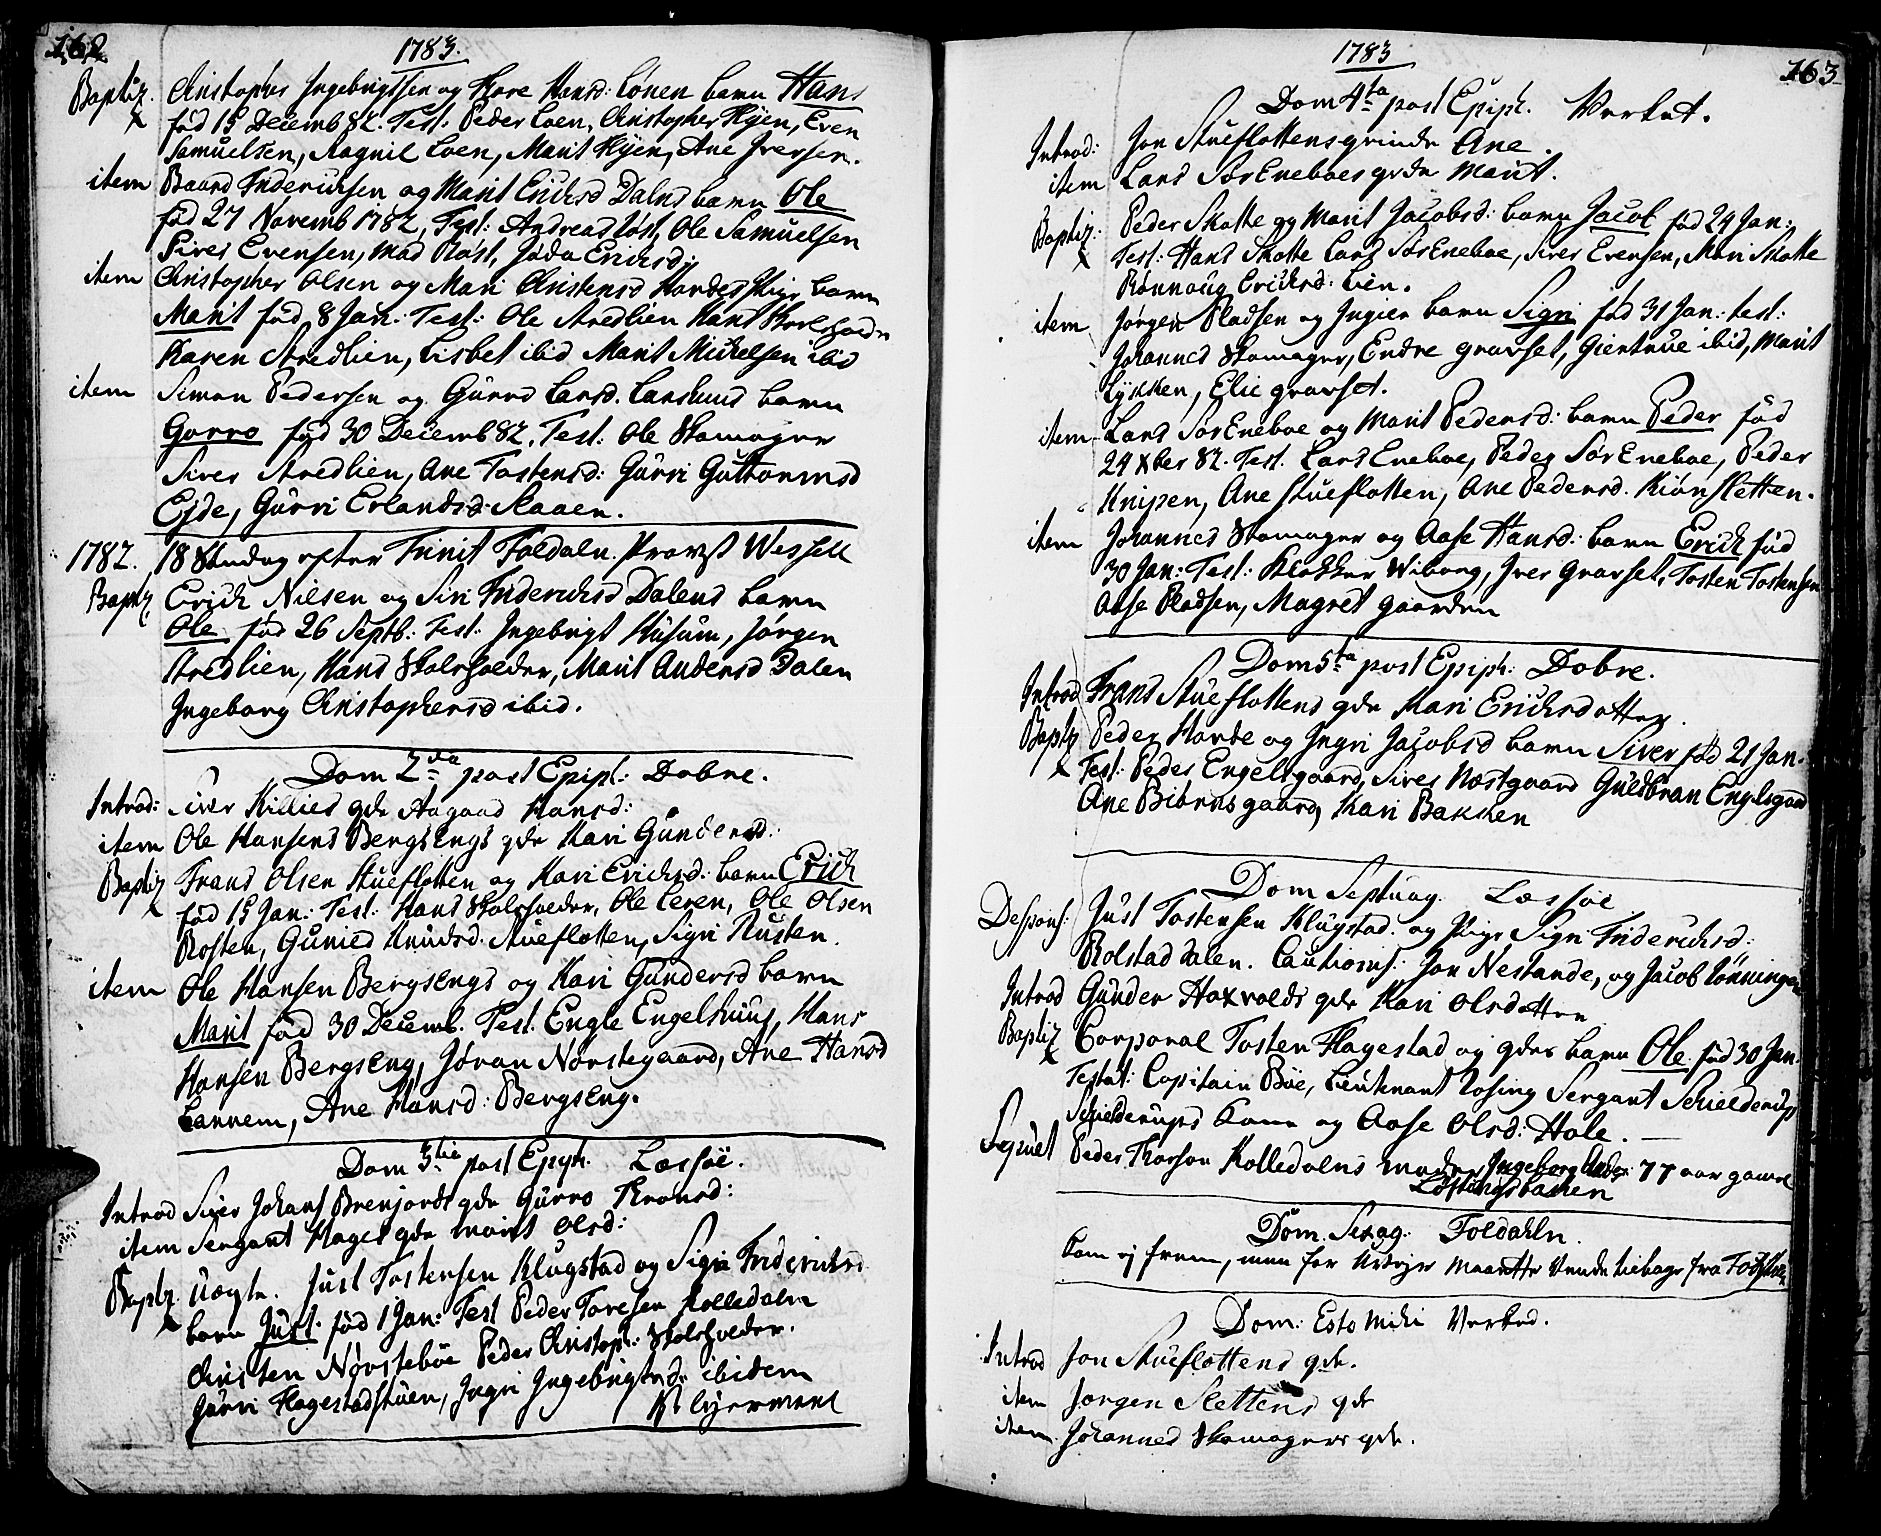 162
1783.
Baptiz. Christopher Ingebrigtsen og Kare Hansd: Lonen barn Hans
fød 15 Decemb 82. Test: Peder Loen, Christopher Hyen, Even
Samuelsen, Ragnil Loen, Marit Hyen, Ane Iversen.
item Baard Friderichsen og Marit Erichsd Dalns barn Ole
fød 27 Novemb 1782, Test: Andreas Løst, Ole Samuelsen
Siver Evensen, Mad Røst, Jøda Erichsd:
item Christopher Olsen og Mari Christensd barn
Marit fød 8 Jan: Test: Ole Stredlien Hans Skoleholder
Karen Stredlien, Lisbet ibid Marit Michelsen ibid
item Simon Pedersen og Gurro Larsd. barn
Gorro fød 30 Decemb 82, Test: Ole Skomager
Siver Stredlien, Ane Tostensd: Gurri Guttormsd
Ejde, Gurri Erlandsd Raaen.
1782. 18 Søndag efter Trinit Foldaln. Provst Wessell
Baptz Erich Nilsen og Siri Friderichsd Dalens barn
Ole fød 26 Septb: Test: Ingebrigt Husum, Jørgen
Stredlien, Hans Skoleholder, Marit Andersd Dalen
Ingeborg Christophersd ibid.
Dom 2da post Epiph: Dobre.
Introd: Siver Killies gde Aagaad Hansd:
item Ole Hansens Bergsengs gde Kari Gundersd:
Baptiz Frans Olsen Stueflotten og Kari Erichsd: barn Erich
fød 15 Jan: Test: Hans Skoleholder, Ole Leren, Ole Olsen
Rosten, Gunied Knudsd. Stueflotten, Sigri Rusten.
item Ole Hansen Bergsengs og Kari Gundersd barn
Marit fød 30 Decemb. Test. Engle Engelshuus, Hans
Hansen Bergseng, Jøran Norstegaard, Ane Hansd
Lannem, Ane Hansd: Bergseng.
Dom 3tia post Epiph. Læssøe.
Introd Siver Johans Brenjords gde Gurro Thronsd:
item Sergant Hages gde Marit Olsd:
Baptz. Uægte. Just Tostensen Klugstad og Sigri Friderichsd
barn Just fød 1 Jan: Test Peder Toresen Kolledalen
Christen Norstebøe Peder Christoph: Skoleholder.
Gurri Flagestadstuen, Ingri Ingebrigtsd ibidem
1783
163
Dom 4ta post Epiph. Verket.
Introd: Jon Stueflottens qvinde Ane.
item Lars Sør Eneboes gde Marit.
Baptiz: Peder Skotte og Marit Jacobsd: barn Jacob fød 24 Jan:
Test: Hans Skotte Lars Sør Eneboe, Siver Evensen, Mari Skotte
Rønnaug Erichsd: Lien.
item Jørgen Pladsen og Ingier barn Sigri fød 31 Jan: test:
Johannes Skomager, Endre gravset, Giertrue ibid, Marit
Lykken, Elie gravset.
item Lars Sør Eneboe og Marit Pedersd: barn Peder fød
24 Xber 82. Test. Lars Eneboe, Peder Sør Eneboe, Peder
Knipen, Ane Stueflotten, Ane Pedersd. Kiønsletten.
item Johannes Skomager og Aase Hansd: barn Erich fød
30 Jan: Test: Klokker Wiborg, Iver Gravset, Tosten Tostensen
Aase Pladsen, Magret gaarden
Dom 5ta post Epiph: Dobre.
Introd Frans Stueflottens gde Mari Erichsdotter.
Baptz Peder Horde og Ingri Jacobsd barn Siver fød 21 Jan.
Test: Peder Engelsgaard, Siver Næstgaard Guldbran Engelsgaard
Ane Biørnsgaard, Kari Bakken
Dom Septuag. Læssøe
Despons: Just Tostensen Klugstad. og Pige Sigri Friderichsd:
Rolstad dalen. Cautions: Jon Nestande, og Jacob Lønningen
Introd Gunder Haxvolds gde Kari Olsdotter
Baptiz Corporal Tosten Flagestad og gdes barn Ole fød 30 Jan
Testat: Capitain Bøe, Lieutenant Rosing Sergant Schielderup
Schielderups Kone og Aase Olsd: Hole.
Sepuet Peder Thorson Kolledalens moder Ingeborg Andr: 77 aar gamel
Løftingsbacken
Dom. Sexag. Foldahln.
Kom ej frem, men for Uvejr maatte Vende tilbage fra
Dom: Esto Mihi Verked.
Introd Jon Stueflottens gde.
item Jorgen Slettens gde
item Johannes Skomagers gde.